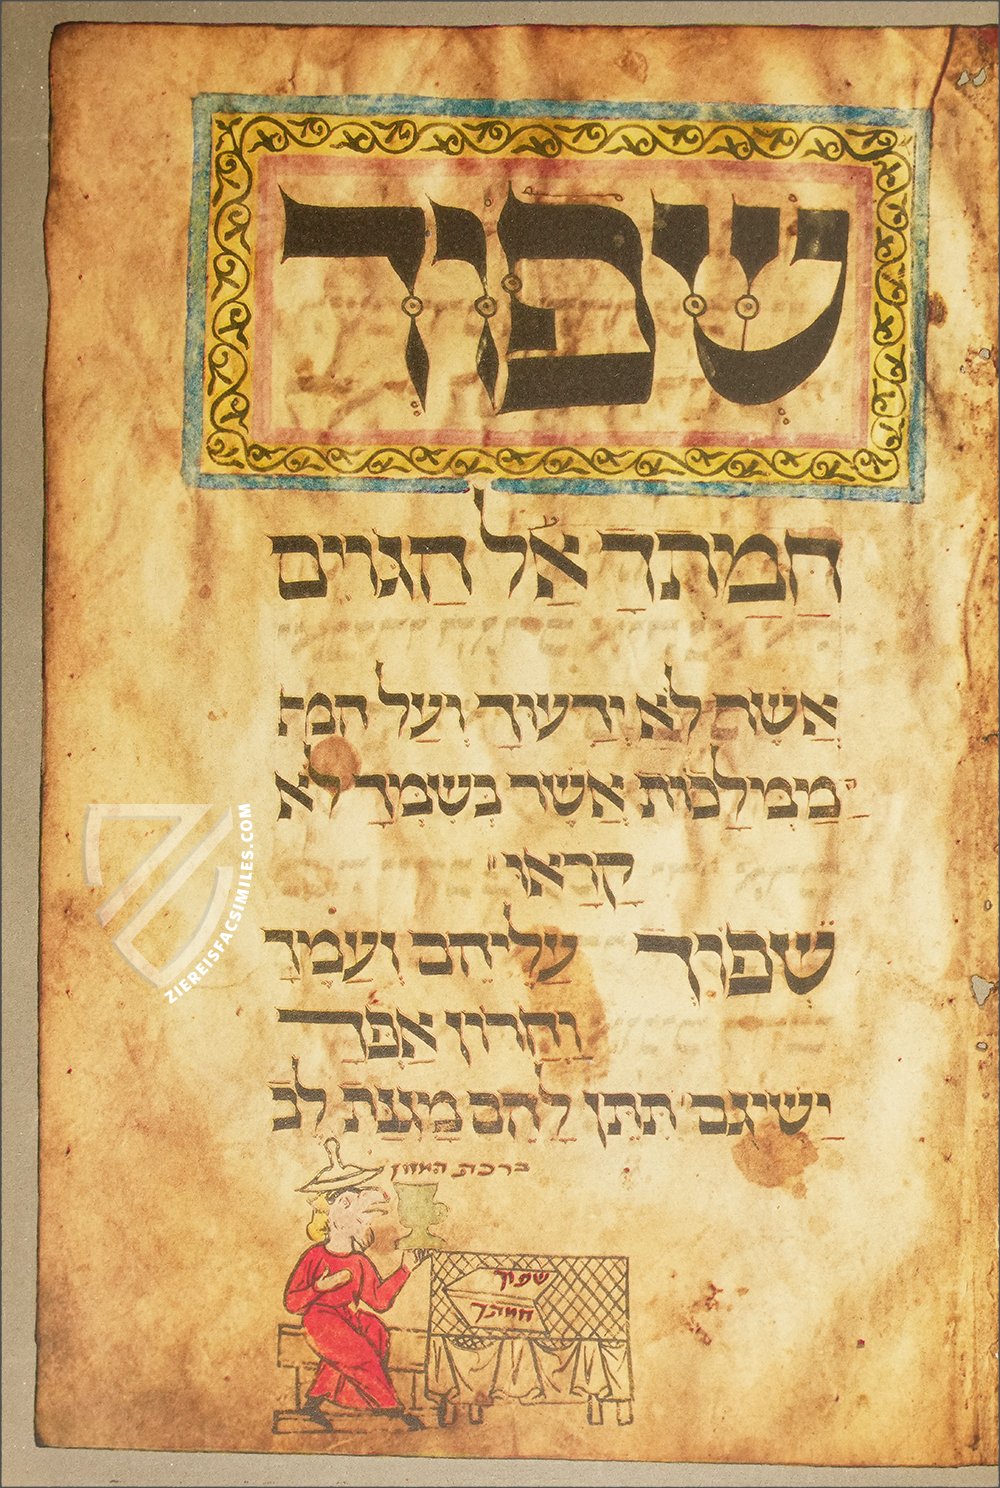 שפוך
חֲמָתְךָ אַל הַגּוֹיִם
אֲשֶׁר לֹא יְדָעוּךָ וְעַל המ
מַמְלָכוֹת אֲשֶׁר בְּשִׁמְךָ לֹא
קָרָאוּ
שְׁפוֹךְ עֲלֵיהֶם וַעֲמֶךָ
וַחֲרוֹן אַפְּךָ
יַשִּׂיגֵם תִּתֵּן לָהֶם מְגִנַּת לֵב
ברכת המזון
שפוך
חמתך
ZIEREISFACSIMILES.COM